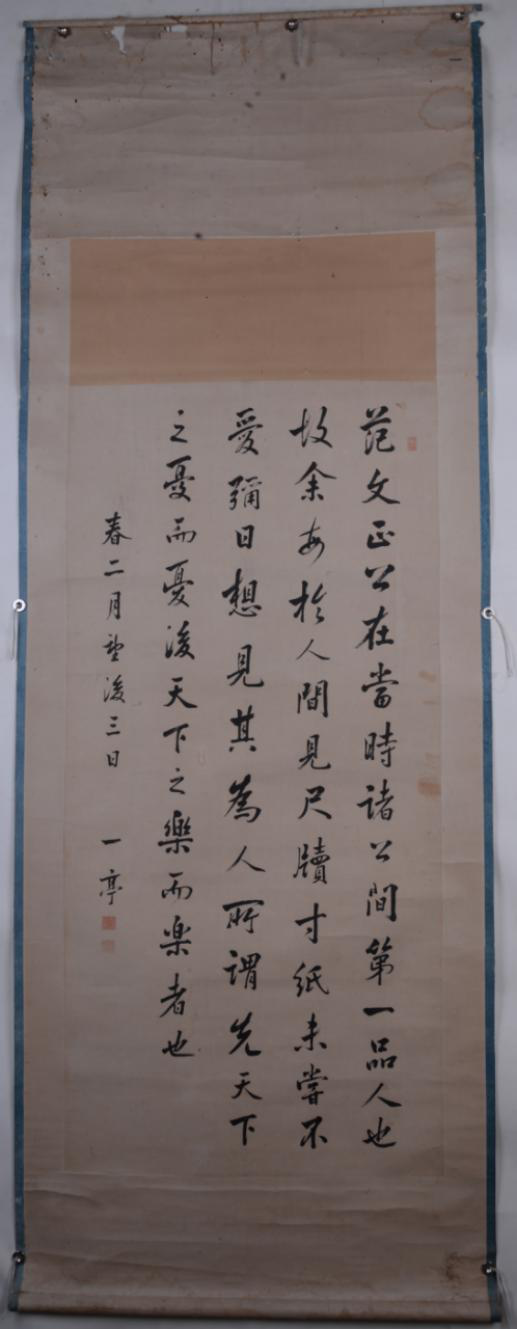 范文正公在當時諸公間第一品人也
故余每於人間見尺牘寸紙未嘗不
愛彌日想見其為人所謂先天下
之憂而憂後天下之樂而楽者也
春二月望後三日 一亭